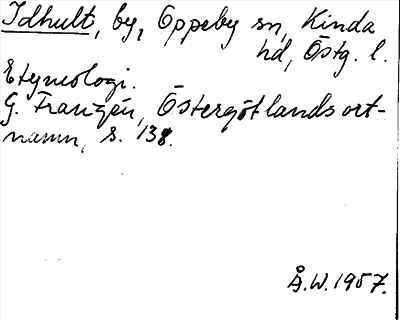 Idhult, by, Oppeby sn, Kinda
hd, Östg. l.
Etymologi.
G. Franzén, Östergötlands ort-
namn, s. 138.
Å.W. 1957.